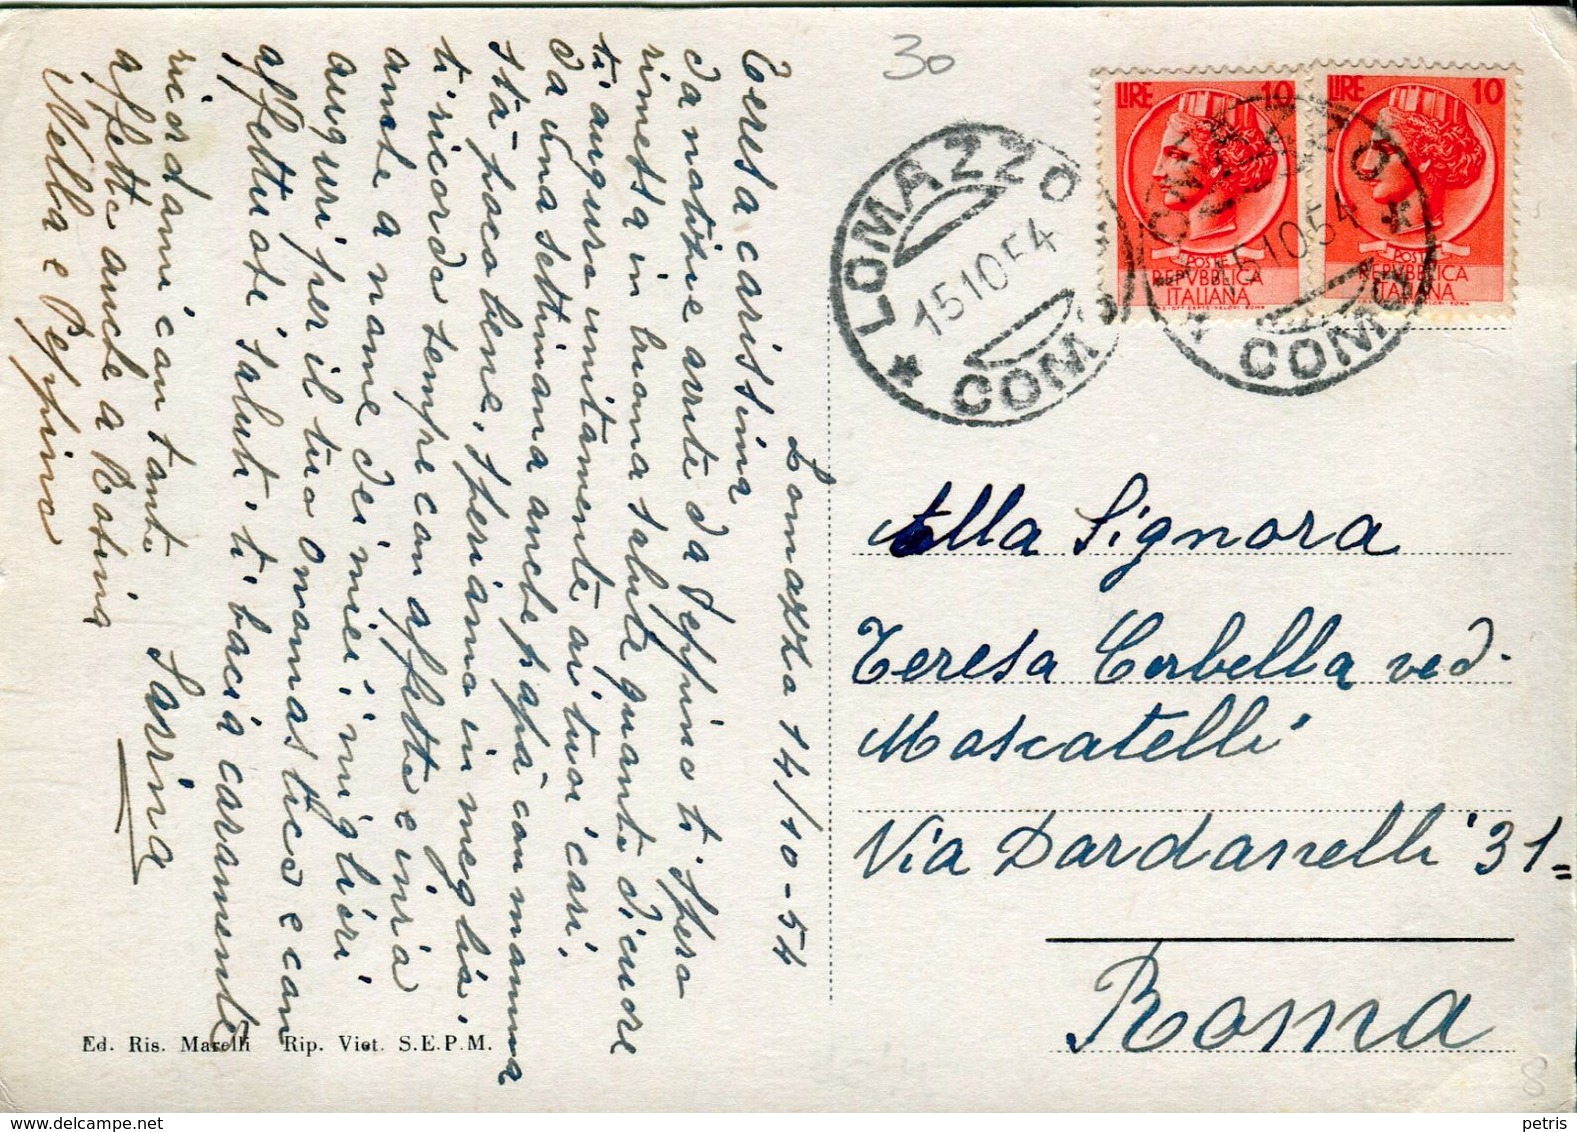 30
LIRE 10
POSTE
REPVBBLICA
ITALIANA
LIRE 10
POSTE
REPVBBLICA
ITALIANA
LOMAZZO
15.10.54
COMO
LOMAZZO
15.10.54
COMO
Lomazzo 14/10-54
Teresa carissima
da notizie avute da Peppino ti spero
rimessa in buona salute quanto di cuore
ti auguro unitamente ai tuoi cari.
Da una settimana anche papà con mamma
sta poco bene, speriamo in meglio.
ti ricordo sempre con affetto e invio
anche a nome dei miei i migliori
auguri per il tuo onomastico e con
affettuosi saluti ti bacia caramente
Sarina
ricordami con tanto
affetto anche a Rosina
Nella e Peppino
Alla Signora
Teresa Corbella ved.
Moscatelli
Via Dardanelli 31=
Roma
Ed. Ris. Marelli Rip. Viet. S.E.P.M.
8
petris